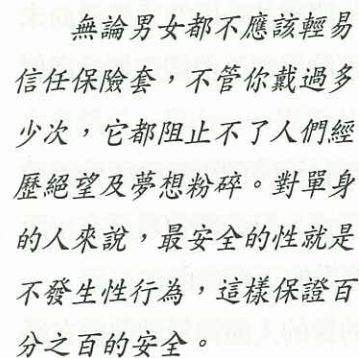 無論男女都不應該輕易
信任保險套，不管你戴過多
少次，它都阻止不了人們經
歷絕望及夢想粉碎。對單身
的人來說，最安全的性就是
不發生性行為，這樣保證百
分之百的安全。